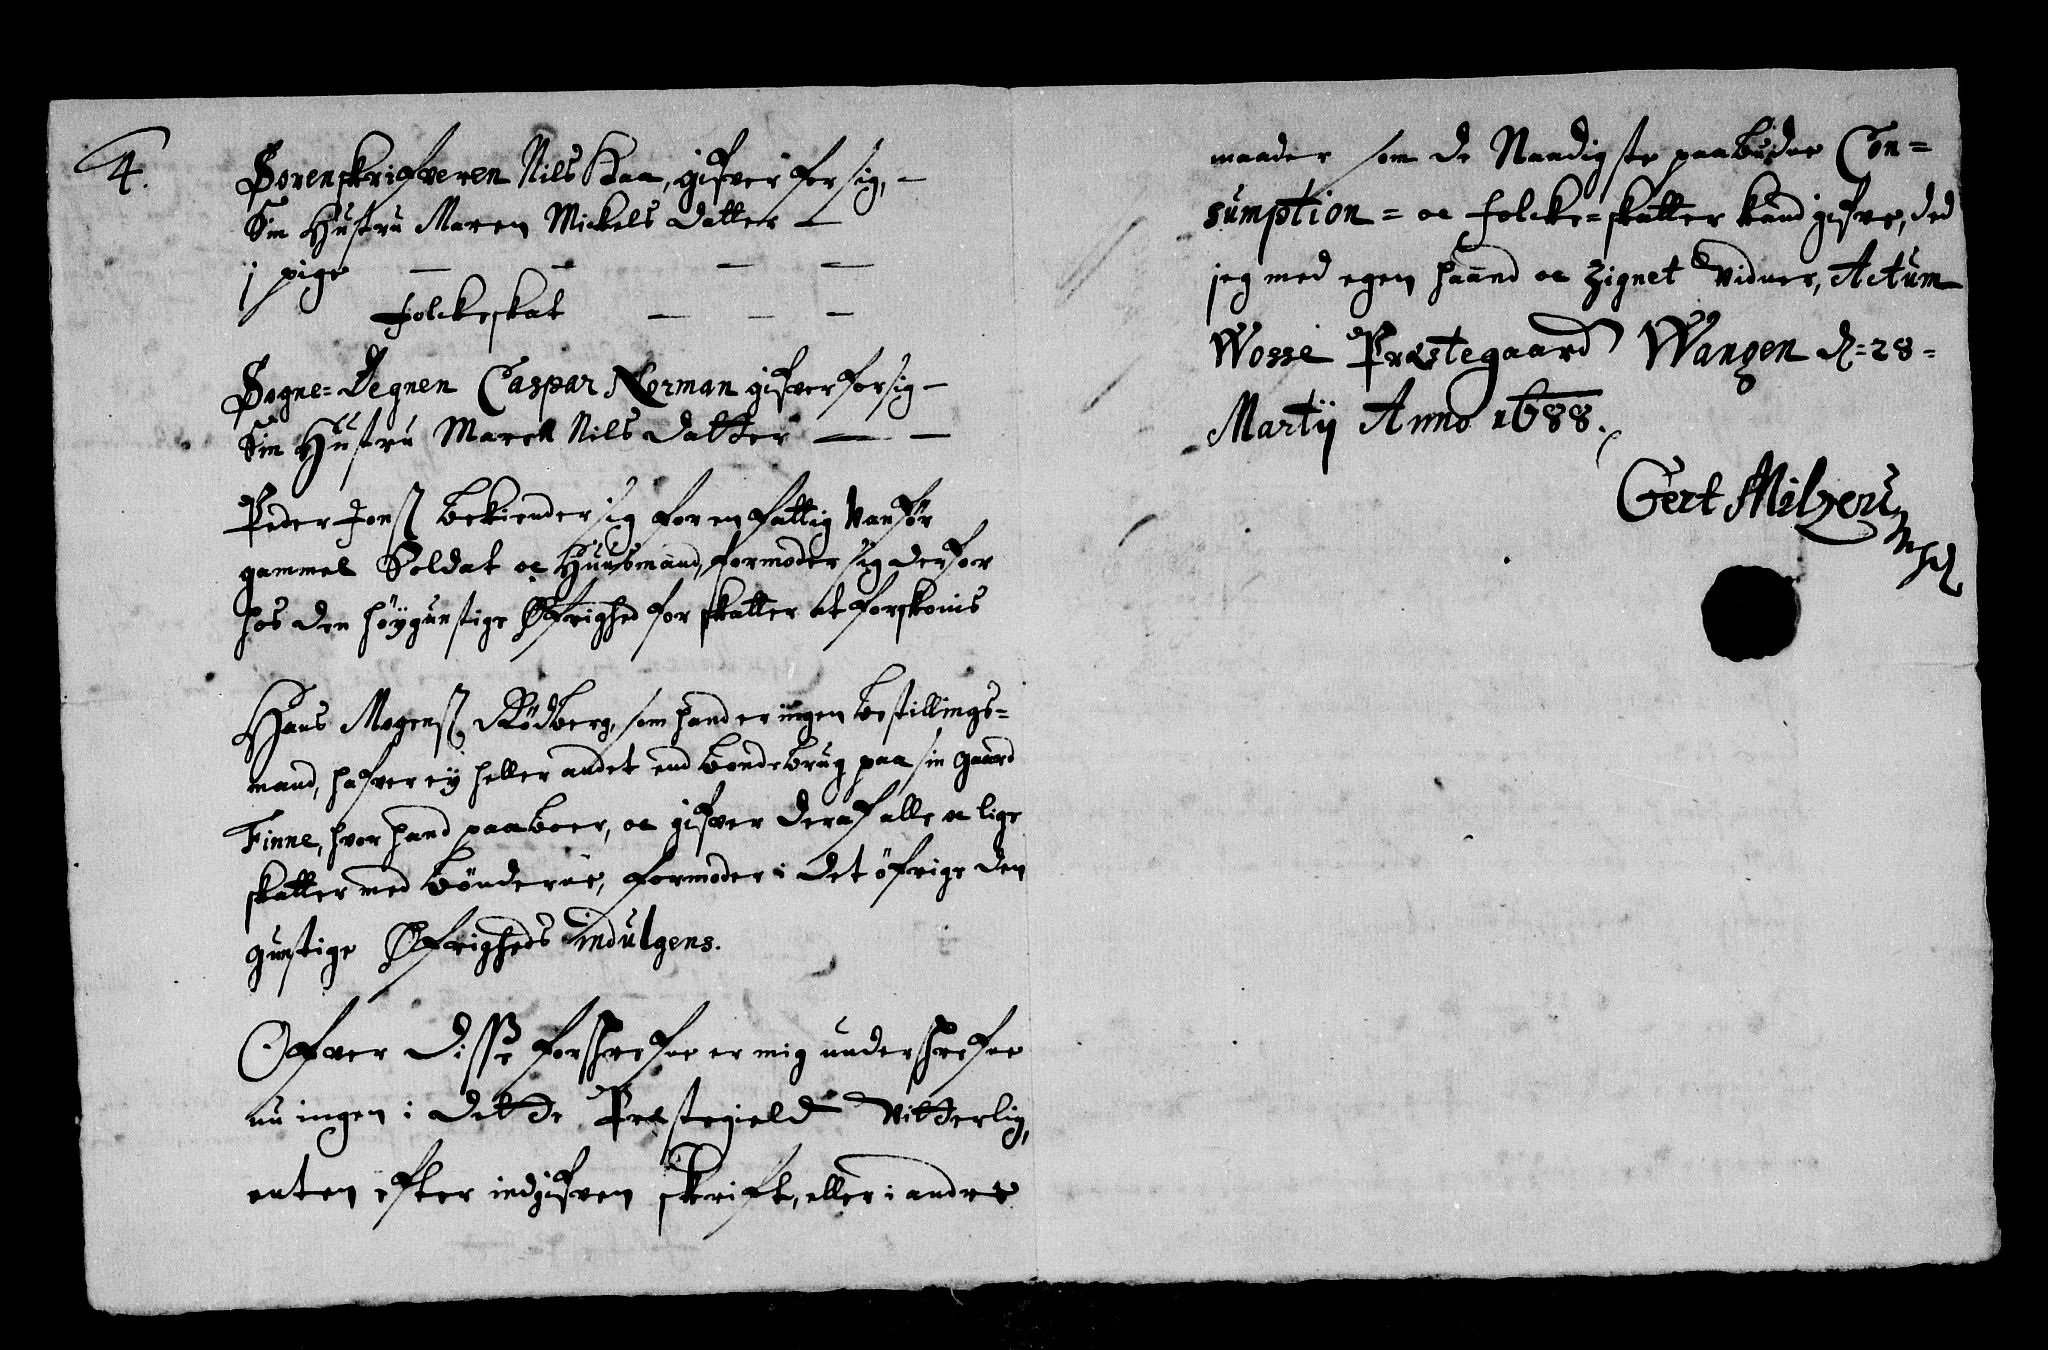 4.
Sorenskrifveren Nils Kaa, gifver for sig, —
Sin Hustru Maren Mickels Datter —
j pige — — — —
Folckeskat — — —
Sogne=Degnen Caspar Norman gifver for sig —
Sin Hustru Maren Nils Datter — —
Peder Jonß bekiender sig for en fattig Vanför
gammel Soldat oc Huusmand, formoder sig derfor
hos den höygunstige Øfrighed for skatter at forskonis
Hans Mogenß Rödberg, som hand er ingen bestillings=
mand, hafver eÿ heller andet end bondebrug paa sin gaard
Finne, hvor hand paaboer, oc gifver deraf alle oc lige
skatter med bönderne, formoder i det öfrige den
gunstige Øfrigheds indulgens.
Ofver disße forskrefne er mig underskrefne
nu ingen i dette Præstegield vitterlig,
enten efter indgifven skrift, eller i andre
maader som de Naadigste paabudne Con=
sumption= oc folcke=skatter kand gifve, ded
jeg med egen haand oc Zignet vidner, Actum
Wosse Præstegaard Wangen d: 28=
Martÿ Anno 1688.
Gert Milzou